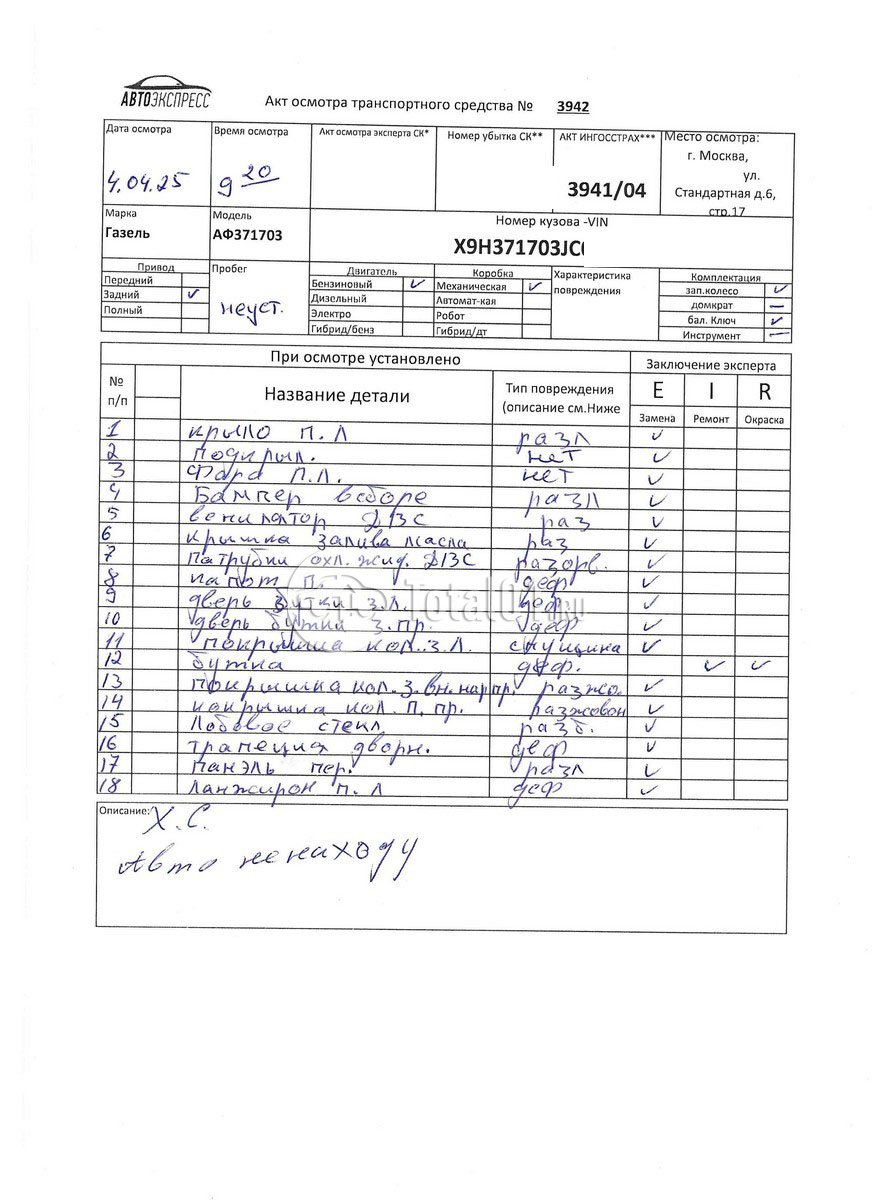 АВТОЭКСПРЕСС
Акт осмотра транспортного средства № 3942
Дата осмотра
4.04.25
Время осмотра
9 20
Акт осмотра эксперта СК*
Номер убытка СК**
АКТ ИНГОССТРАХ***
3941/04
Место осмотра:
г. Москва,
ул.
Стандартная д.6,
стр.17
Марка
Газель
Модель
АФ371703
Номер кузова -VIN
X9H371703JC
Привод
Передний
Задний ✓
Полный
Пробег
неуст.
Двигатель
Бензиновый ✓
Дизельный
Электро
Гибрид/бенз
Коробка
Механическая ✓
Автомат-кая
Робот
Гибрид/дт
Характеристика
повреждения
Комплектация
зап.колесо ✓
домкрат —
бал. Ключ ✓
Инструмент —
При осмотре установлено
Заключение эксперта
№
п/п
Название детали
Тип повреждения
(описание см.Ниже
E I R
Замена Ремонт Окраска
1 крыло п.л разл ✓
2 подкрыл. нет ✓
3 Фара п.л. нет ✓
4 Бампер в сборе разл ✓
5 венилятор ДВС раз ✓
6 крышка залива масла раз ✓
7 патрубки охл. жид. ДВС разорв. ✓
8 капот п. деф ✓
9 дверь бутки з.л. деф ✓
10 дверь бутки з.пр. деф ✓
11 покрышка кол. з.л. ✓
12 бутка деф. ✓ ✓
13 покрышка кол. з.вн.нар пр. ✓
14 покрышка кол. п. пр. ✓
15 Лобовое стекл разб. ✓
16 трапеция дворн. деф ✓
17 панэль пер. разл ✓
18 Ланжирон п.л деф ✓
Total01.RU
Описание:
Х.С.
Авто не на ходу